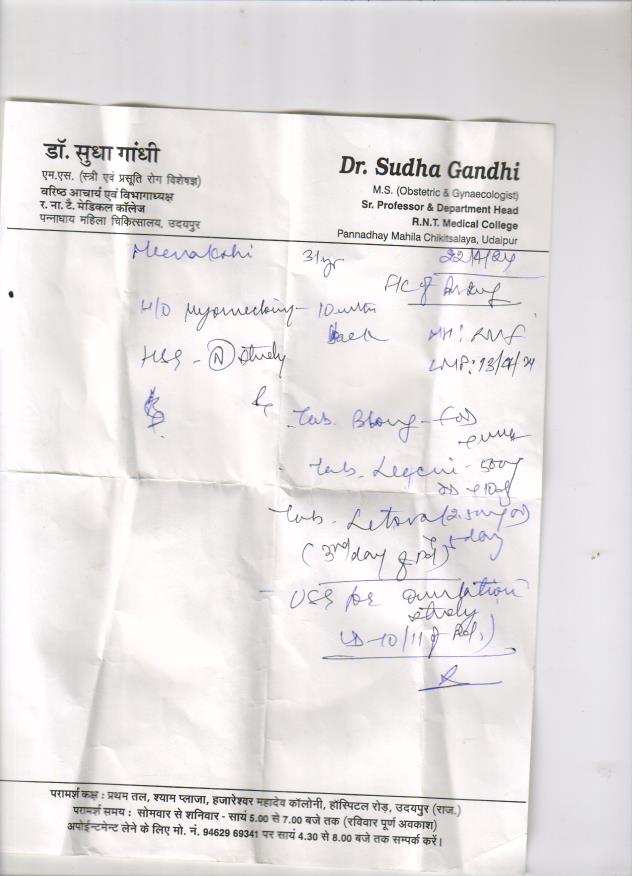 डॉ. सुधा गांधी
एम.एस. (स्त्री एवं प्रसूति रोग विशेषज्ञ)
वरिष्ठ आचार्य एवं विभागाध्यक्ष
र. ना. टै. मेडिकल कॉलेज
पन्नाधाय महिला चिकित्सालय, उदयपुर
Dr. Sudha Gandhi
M.S. (Obstetric & Gynaecologist)
Sr. Professor & Department Head
R.N.T. Medical College
Pannadhay Mahila Chikitsalaya, Udaipur
Meenakshi 31yr 22/4/24
H/O myomectomy - 10
back
HSG - N study LMP: 13/4/24
Tab.
Tab. - 500mg
Tab. Letova (2.5mg OD)
(3rd day of 5 day
USG for ovulation
study
10/11 of
परामर्श कक्ष : प्रथम तल, श्याम प्लाजा, हजारेश्वर महादेव कॉलोनी, हॉस्पिटल रोड़, उदयपुर (राज.)
परामर्श समय : सोमवार से शनिवार - सायं 5.00 से 7.00 बजे तक (रविवार पूर्ण अवकाश)
अपोईन्टमेन्ट लेने के लिए मो. नं. 94629 69341 पर सायं 4.30 से 8.00 बजे तक सम्पर्क करें।